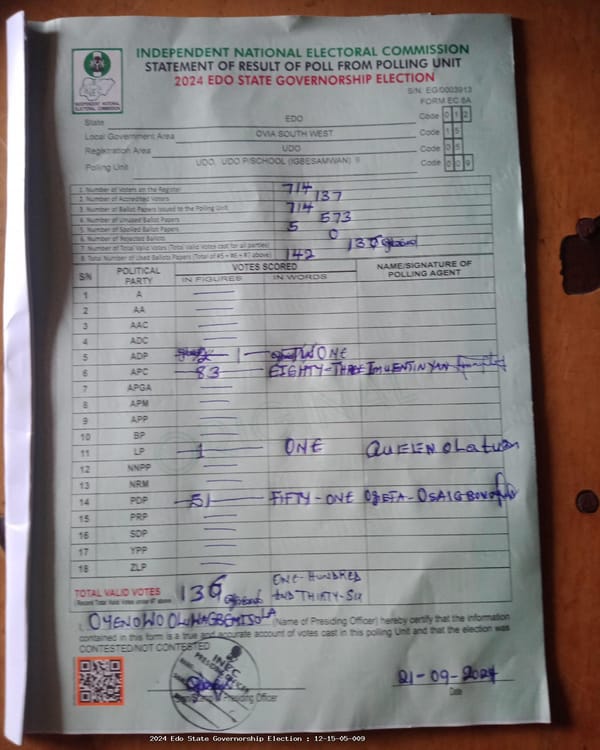 INDEPENDENT NATIONAL ELECTORAL COMMISSION
STATEMENT OF RESULT OF POLL FROM POLLING UNIT
2024 EDO STATE GOVERNORSHIP ELECTION
S/N: EG/0003913
FORM EC 8A
INDEPENDENT NATIONAL ELECTORAL COMMISSION
State EDO Code 0 1 2
Local Government Area OVIA SOUTH WEST Code 1 5
Registration Area UDO Code 0 5
Polling Unit UDO, UDO P/SCHOOL (IGBESAMWAN) II Code 0 0 9
1. Number of Voters on the Register 714
2. Number of Accredited Voters 137
3. Number of Ballot Papers Issued to the Polling Unit 714
4. Number of Unused Ballot Papers 573
5. Number of Spoiled Ballot Papers 5
6. Number of Rejected Ballots 0
7. Number of Total Valid Votes (Total Valid Votes cast for all parties) 136
8. Total Number of Used Ballots Papers (Total of #5 + #6 + #7 above) 142
S/N POLITICAL PARTY VOTES SCORED NAME/SIGNATURE OF POLLING AGENT
IN FIGURES IN WORDS
1 A
2 AA
3 AAC
4 ADC
5 ADP 1 ONE
6 APC 83 EIGHTY-THREE
7 APGA
8 APM
9 APP
10 BP
11 LP 1 ONE QUEEN OLATUN
12 NNPP
13 NRM
14 PDP 51 FIFTY-ONE OJETA-OSAIGBOVO
15 PRP
16 SDP
17 YPP
18 ZLP
TOTAL VALID VOTES 136 ONE-HUNDRED
(Record Total Valid Votes under #7 above) AND THIRTY-SIX
I, OYENOWO OLUWAGBEMISOLA (Name of Presiding Officer) hereby certify that the information
contained in this form is a true and accurate account of votes cast in this polling Unit and that the election was
CONTESTED/NOT CONTESTED
INEC
PRESIDING OFFICER
21-09-2024
Presiding Officer Date
2024 Edo State Governorship Election : 12-15-05-009